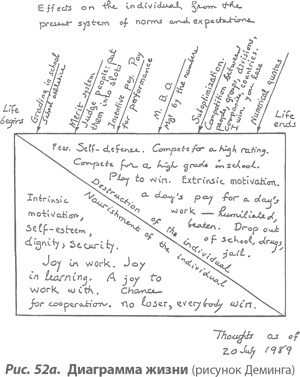 Effects on the individual from the
present system of norms and expectations
Life
begins
Grading in school
Merit system
Judge people: put
them into slots
Incentive pay. Pay
for performance
M.B.O.
Mgt by the numbers
Suboptimization.
Competition between
people, groups, divisions,
companies, countries.
I win, you lose
Numerical quotas
Life
ends
Fear. Self-defense. Compete for a high rating.
Compete for a high grade in school.
Play to win. Extrinsic motivation.
a day's pay for a day's
work — humiliated,
beaten. Drop out
of school, drugs,
jail.
Destruction of the individual
Nourishment of the individual
Intrinsic
motivation,
self-esteem,
dignity, security.
Joy in work. Joy
in learning. A joy to
work with. Chance
for cooperation. no loser, everybody win.
Thoughts as of
20 July 1989
Рис. 52а. Диаграмма жизни (рисунок Деминга)